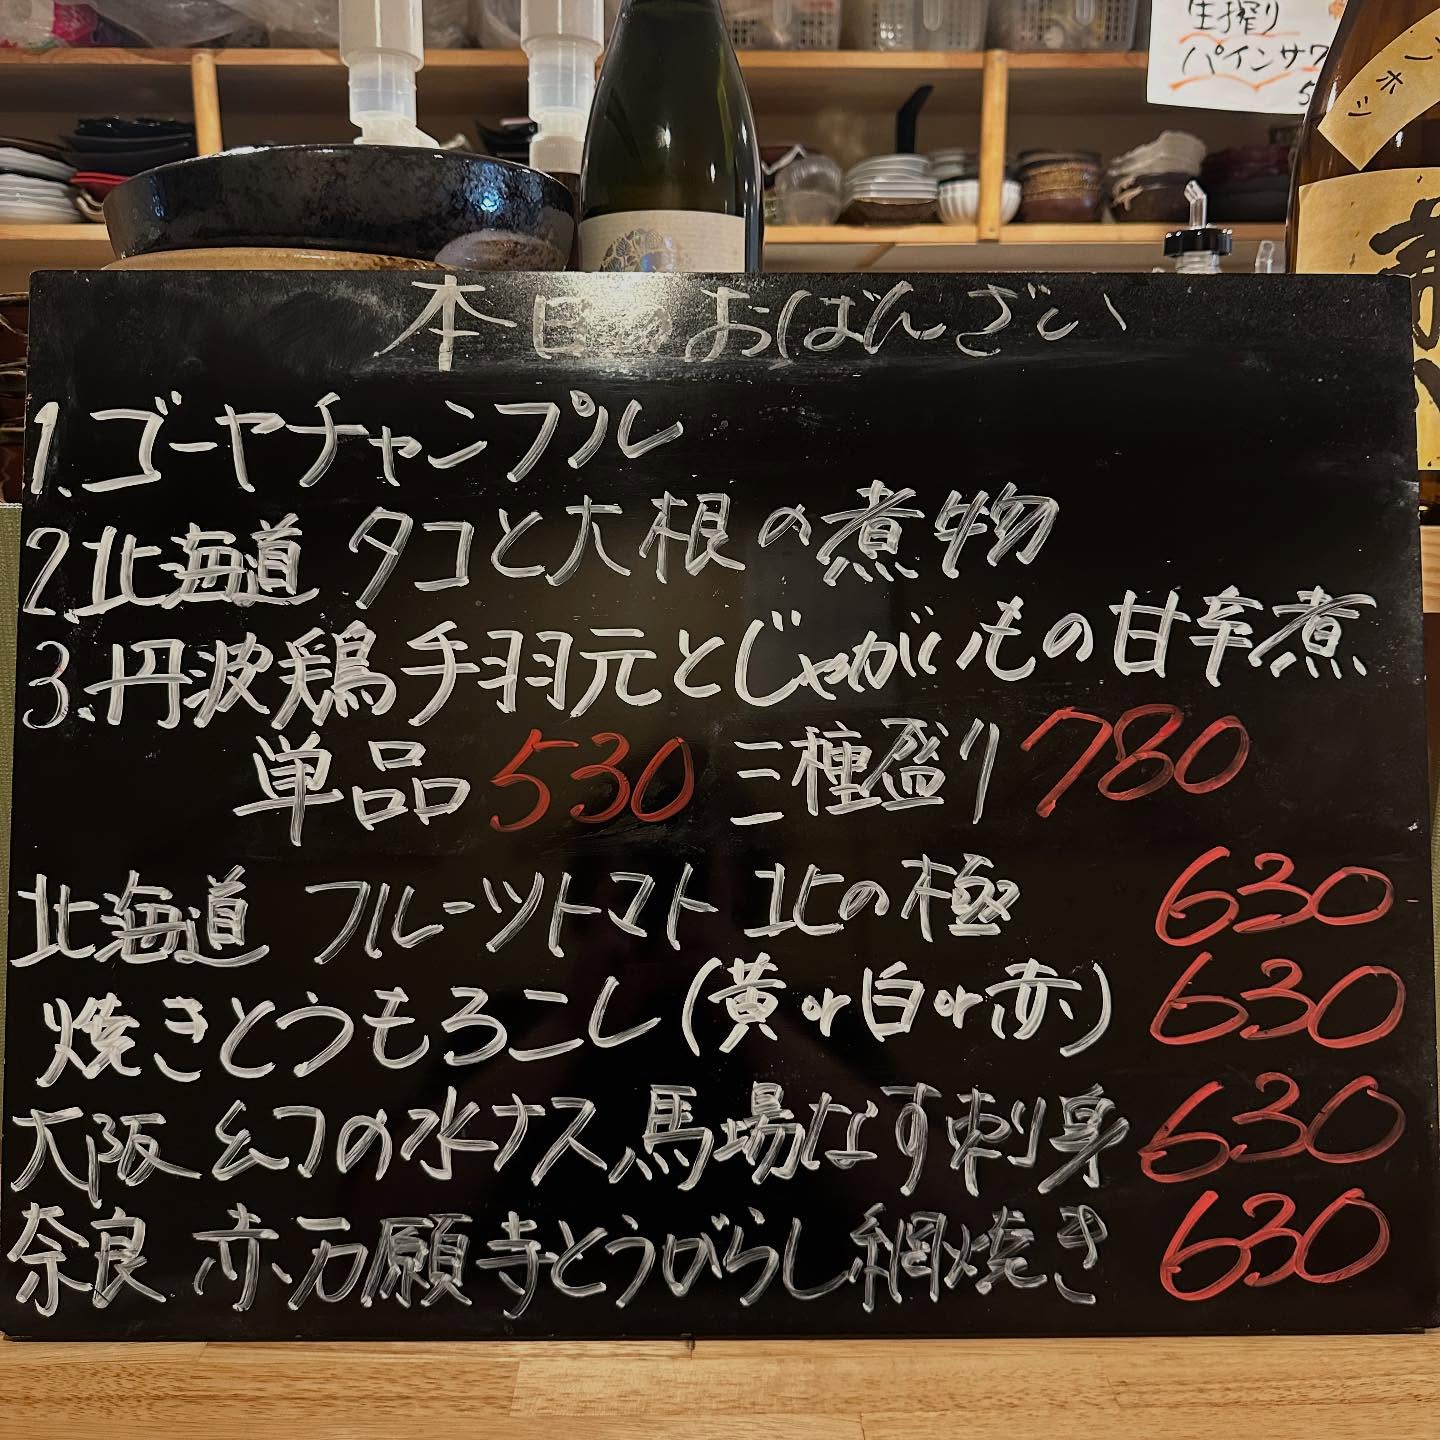 生搾り
パインサワ
本日のおばんざい
1.ゴーヤチャンプル
2.北海道 タコと大根の煮物
3.丹波鶏手羽元とじゃがいもの甘辛煮
単品530 三種盛り780
北海道 フルーツトマト 北の極 630
焼きとうもろこし(黄or白or赤) 630
大阪 幻の水ナス、馬場なす刺身 630
奈良 赤万願寺とうがらし網焼き 630